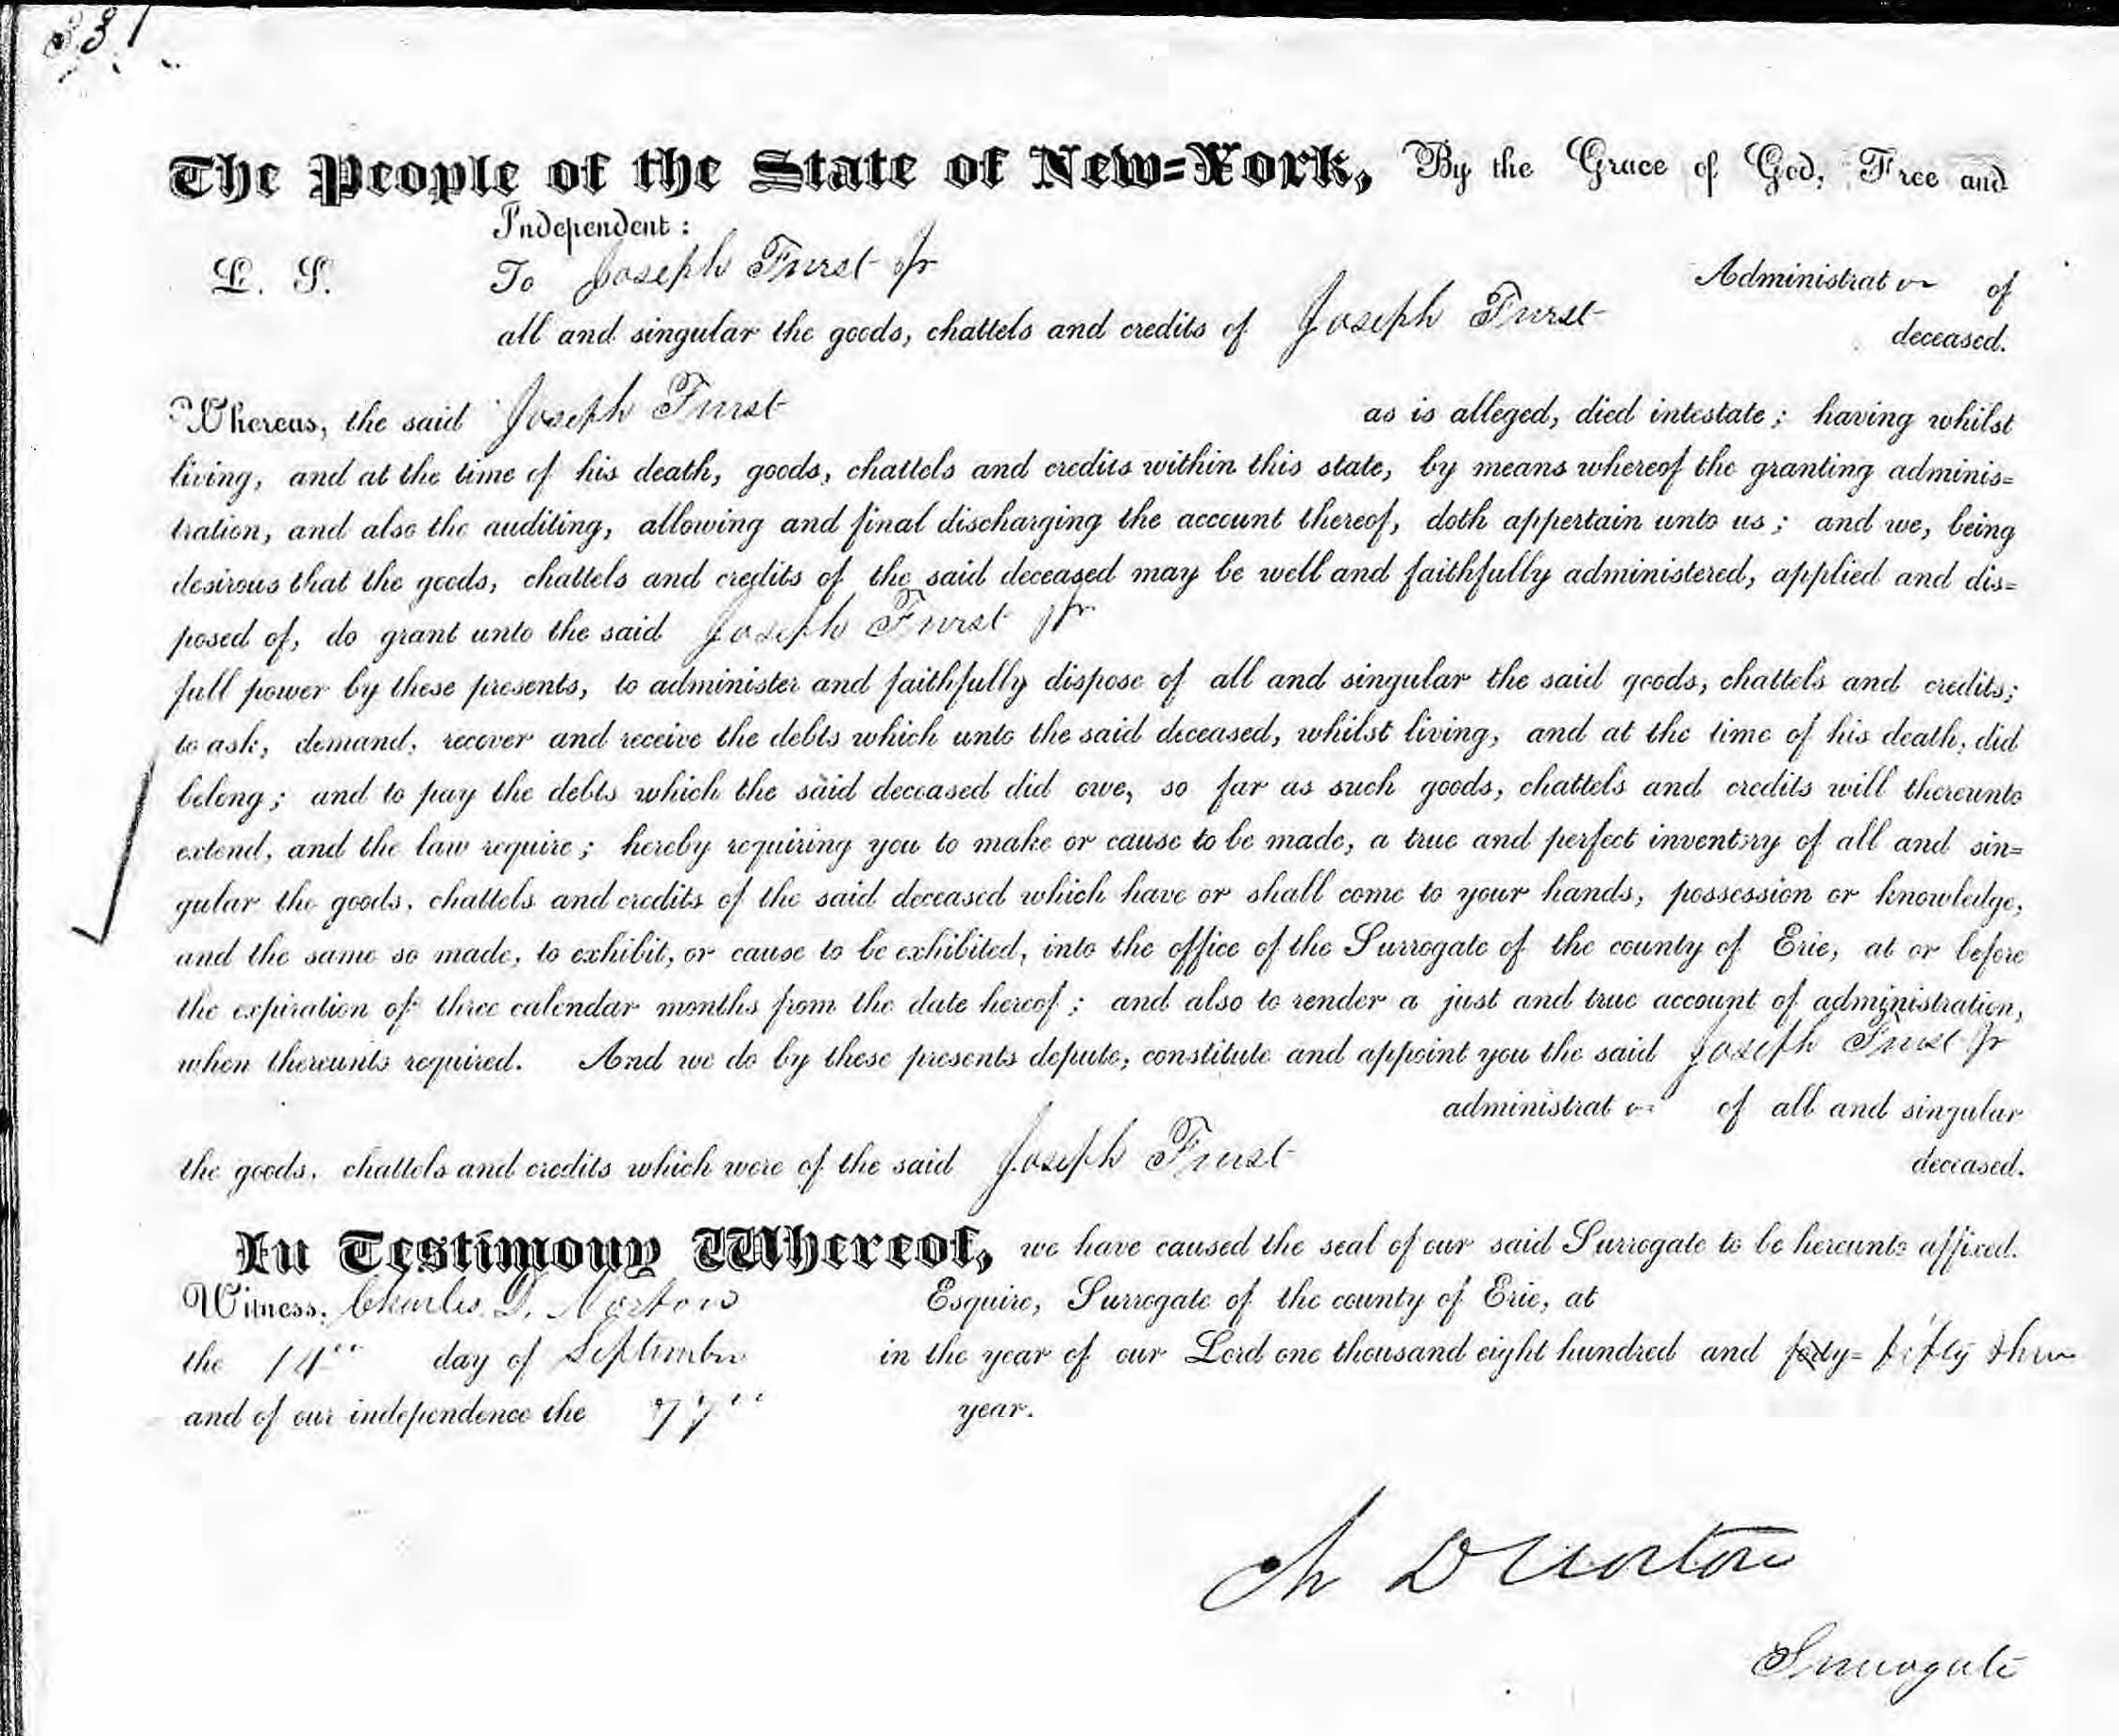 331
The People of the State of New=York, By the Grace of God, Free and
Independent:
L. S. To Joseph Furst Jr Administrat or of
all and singular the goods, chattels and credits of Joseph Furst deceased.
Whereas, the said Joseph Furst as is alleged, died intestate; having whilst
living, and at the time of his death, goods, chattels and credits within this state, by means whereof the granting adminis=
tration, and also the auditing, allowing and final discharging the account thereof, doth appertain unto us; and we, being
desirous that the goods, chattels and credits of the said deceased may be well and faithfully administered, applied and dis=
posed of, do grant unto the said Joseph Furst Jr
full power by these presents, to administer and faithfully dispose of all and singular the said goods, chattels and credits;
to ask, demand, recover and receive the debts which unto the said deceased, whilst living, and at the time of his death, did
belong; and to pay the debts which the said deceased did owe, so far as such goods, chattels and credits will thereunto
extend, and the law require; hereby requiring you to make or cause to be made, a true and perfect inventory of all and sin=
gular the goods, chattels and credits of the said deceased which have or shall come to your hands, possession or knowledge,
and the same so made, to exhibit, or cause to be exhibited, into the office of the Surrogate of the county of Erie, at or before
the expiration of three calendar months from the date hereof; and also to render a just and true account of administration,
when thereunto required. And we do by these presents depute, constitute and appoint you the said Joseph Furst Jr
administrat or of all and singular
the goods, chattels and credits which were of the said Joseph Furst deceased.
In Testimony Whereof, we have caused the seal of our said Surrogate to be hereunto affixed.
Witness, Charles D. Norton Esquire, Surrogate of the county of Erie, at
the 14th day of September in the year of our Lord one thousand eight hundred and forty= fifty three
and of our independence the 77th year.
Ch D Norton
Surrogate